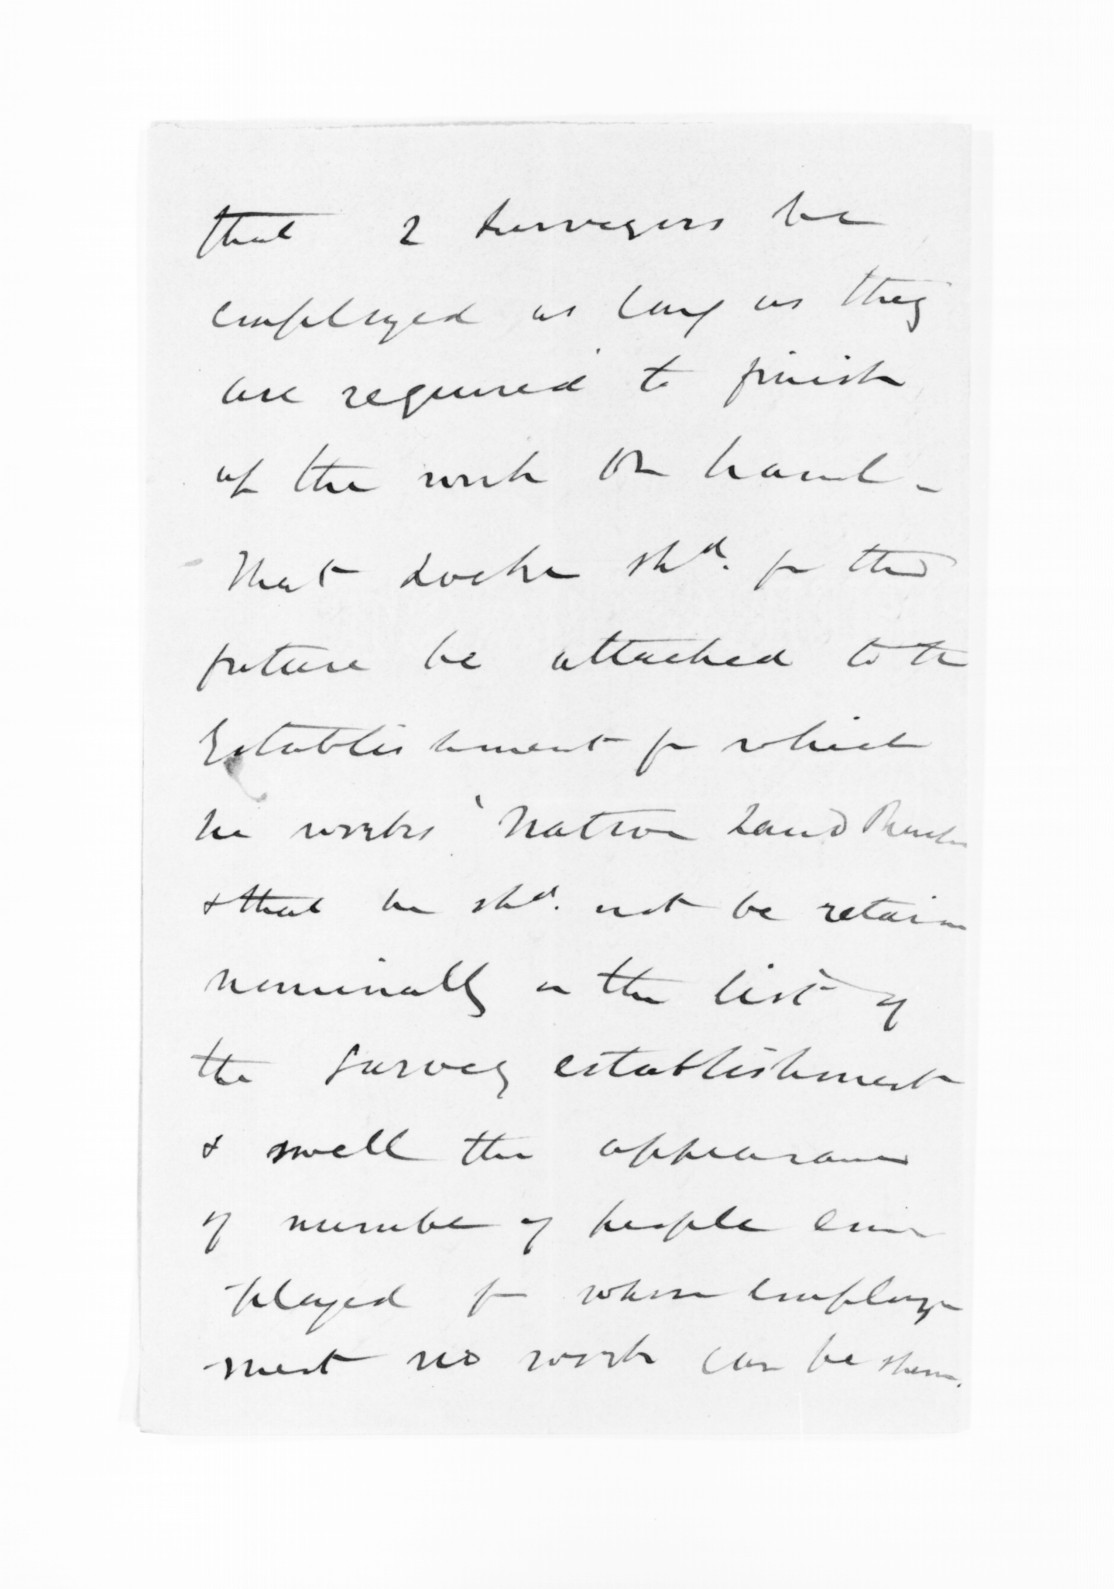 that 2 Surveyors be
employed as long as they
are required to finish
up the work on hand -
That Locke shd. for the
future be attached to the
Establishment for which
he works 'Native Land Purchase
& that he shd. not be retain
nominally on the list of
the Survey establishment
& swell the appearance
of number of people em
ployed for whose employ
ment no work can be shewn.